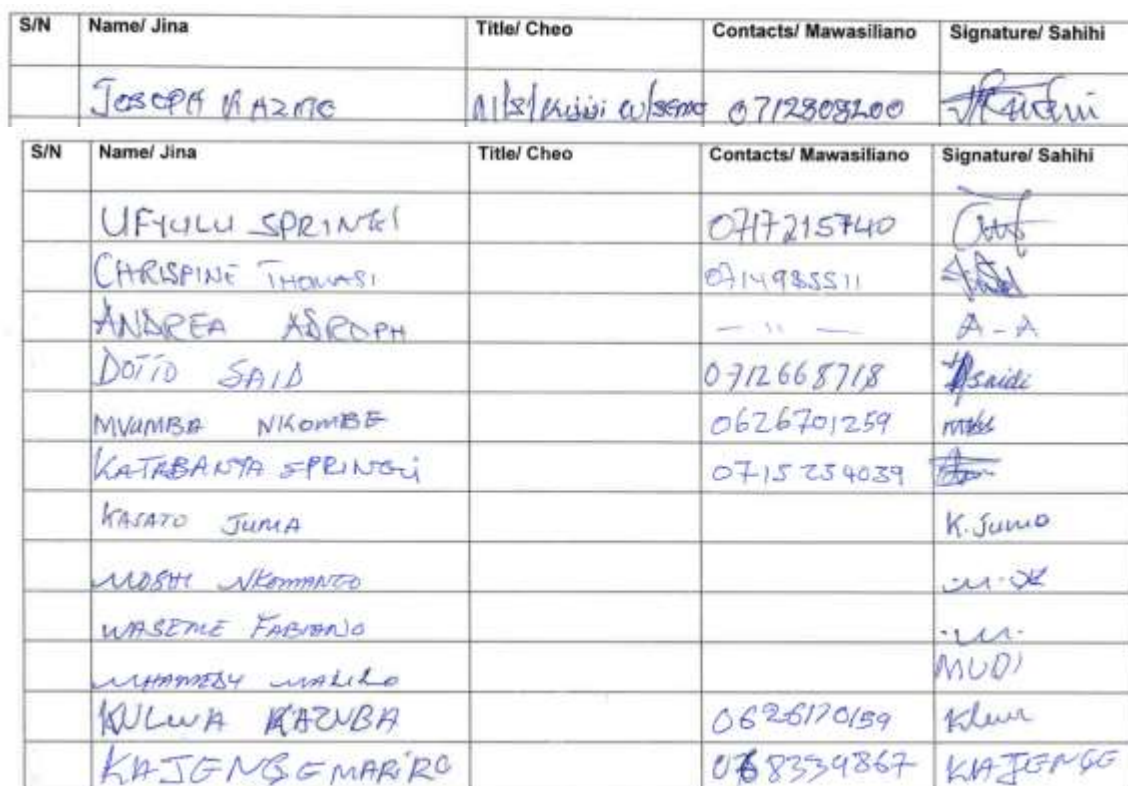 S/N Name/ Jina Title/ Cheo Contacts/ Mawasiliano Signature/ Sahihi
JOSEPH KAZMO 0712808200
S/N Name/ Jina Title/ Cheo Contacts/ Mawasiliano Signature/ Sahihi
UFYULU SPRINGI 0717215740
CHRISPINE THOMASI 0714985511
ANDREA ADROPH — " — A - A
DOTTO SAID 0712668718 Saidi
MVUMBA NKOMBE 0626701259
KATABANYA SPRINGLi 0715254039
KASATO JUMA K. Juma
MOSHI NKOMANGO
WASEME FABIANO
MHAMEDY MALILO MUDI
KULWA KAZUBA 0626170159
KAJENGE MARIRO 0768339867 KAJENGE